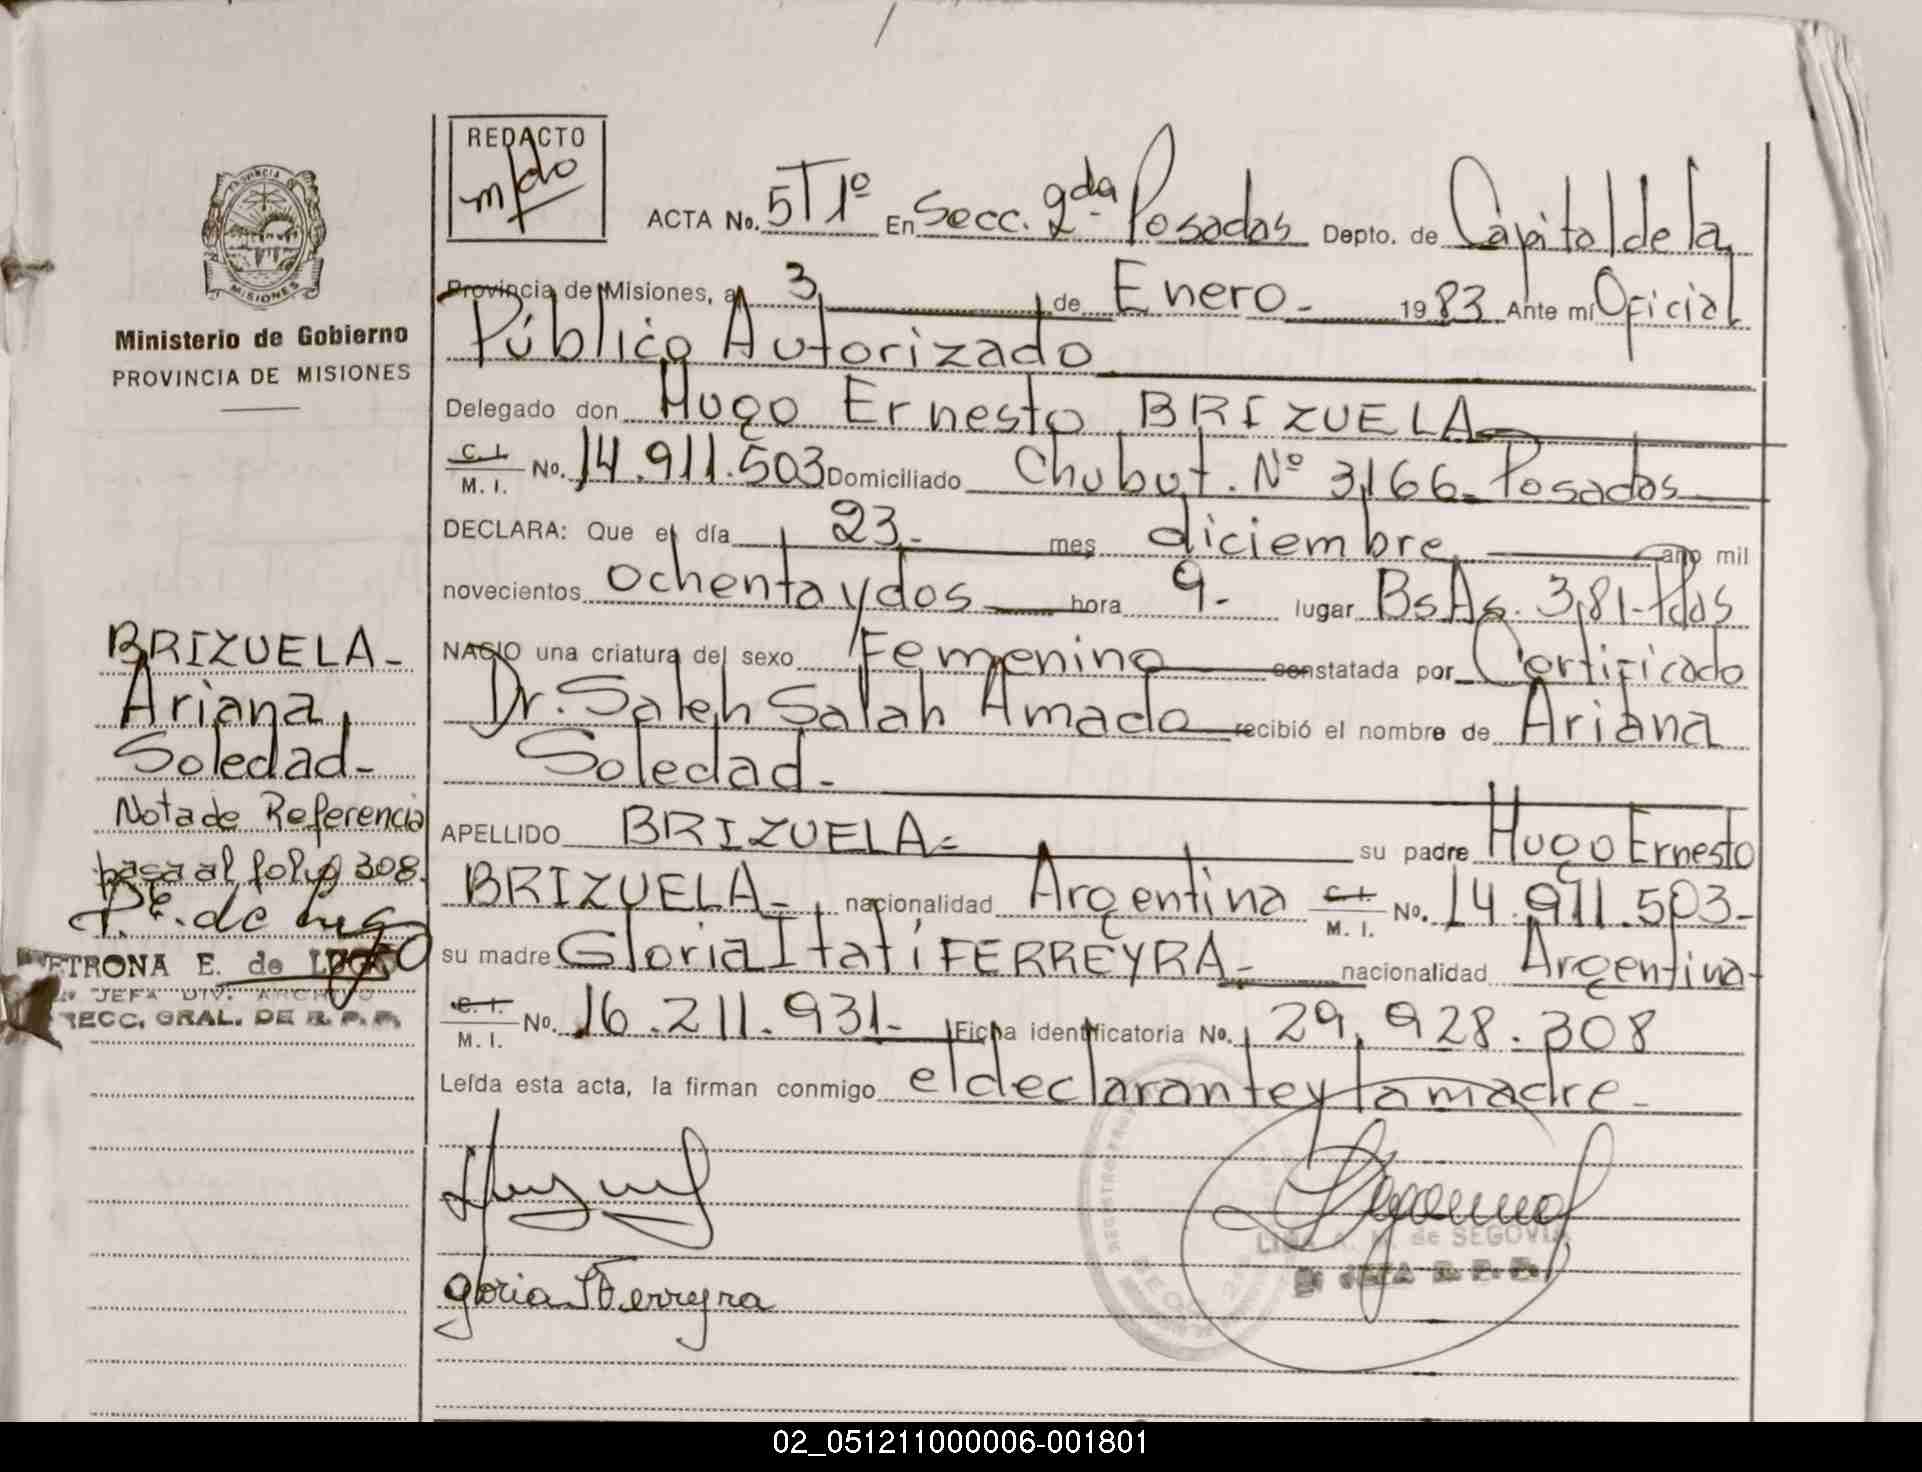 REDACTO
m/do
ACTA No. 5T1º En Secc. 2da Posadas Depto. de Capital de la
Provincia de Misiones, a 3 de Enero - 1983 Ante mí Oficial
Público Autorizado
Delegado don Hugo Ernesto BRIZUELA
C. I. M. I. No. 14.911.503 Domiciliado Chubut. Nº 3166- Posadas
DECLARA: Que el día 23- mes diciembre año mil
novecientos ochenta y dos hora 9- lugar BsAs. 381-Pdas
NACIO una criatura del sexo Femenino constatada por Certificado
Dr. Saleh Salah Amado recibió el nombre de Ariana
Soledad -
APELLIDO BRIZUELA= su padre Hugo Ernesto
BRIZUELA- nacionalidad Argentina C.I. M. I. No. 14.911.503-
su madre Gloria Itatí FERREYRA- nacionalidad Argentina-
C. I. M. I. No. 16.211.931- Ficha identificatoria No. 29.928.308
Leída esta acta, la firman conmigo el declarante y la madre-
gloria I Ferreyra
de SEGOVIA
PROVINCIA
MISIONES
Ministerio de Gobierno
PROVINCIA DE MISIONES
BRIZUELA-
Ariana
Soledad-
Nota de Referencia
pasa al folio 308.
P. E. de Lugo
PETRONA E. de LUGO
JEFA DIV. ARCHIVO
DIRECC. GRAL. DE R. P. P.
02_051211000006-001801